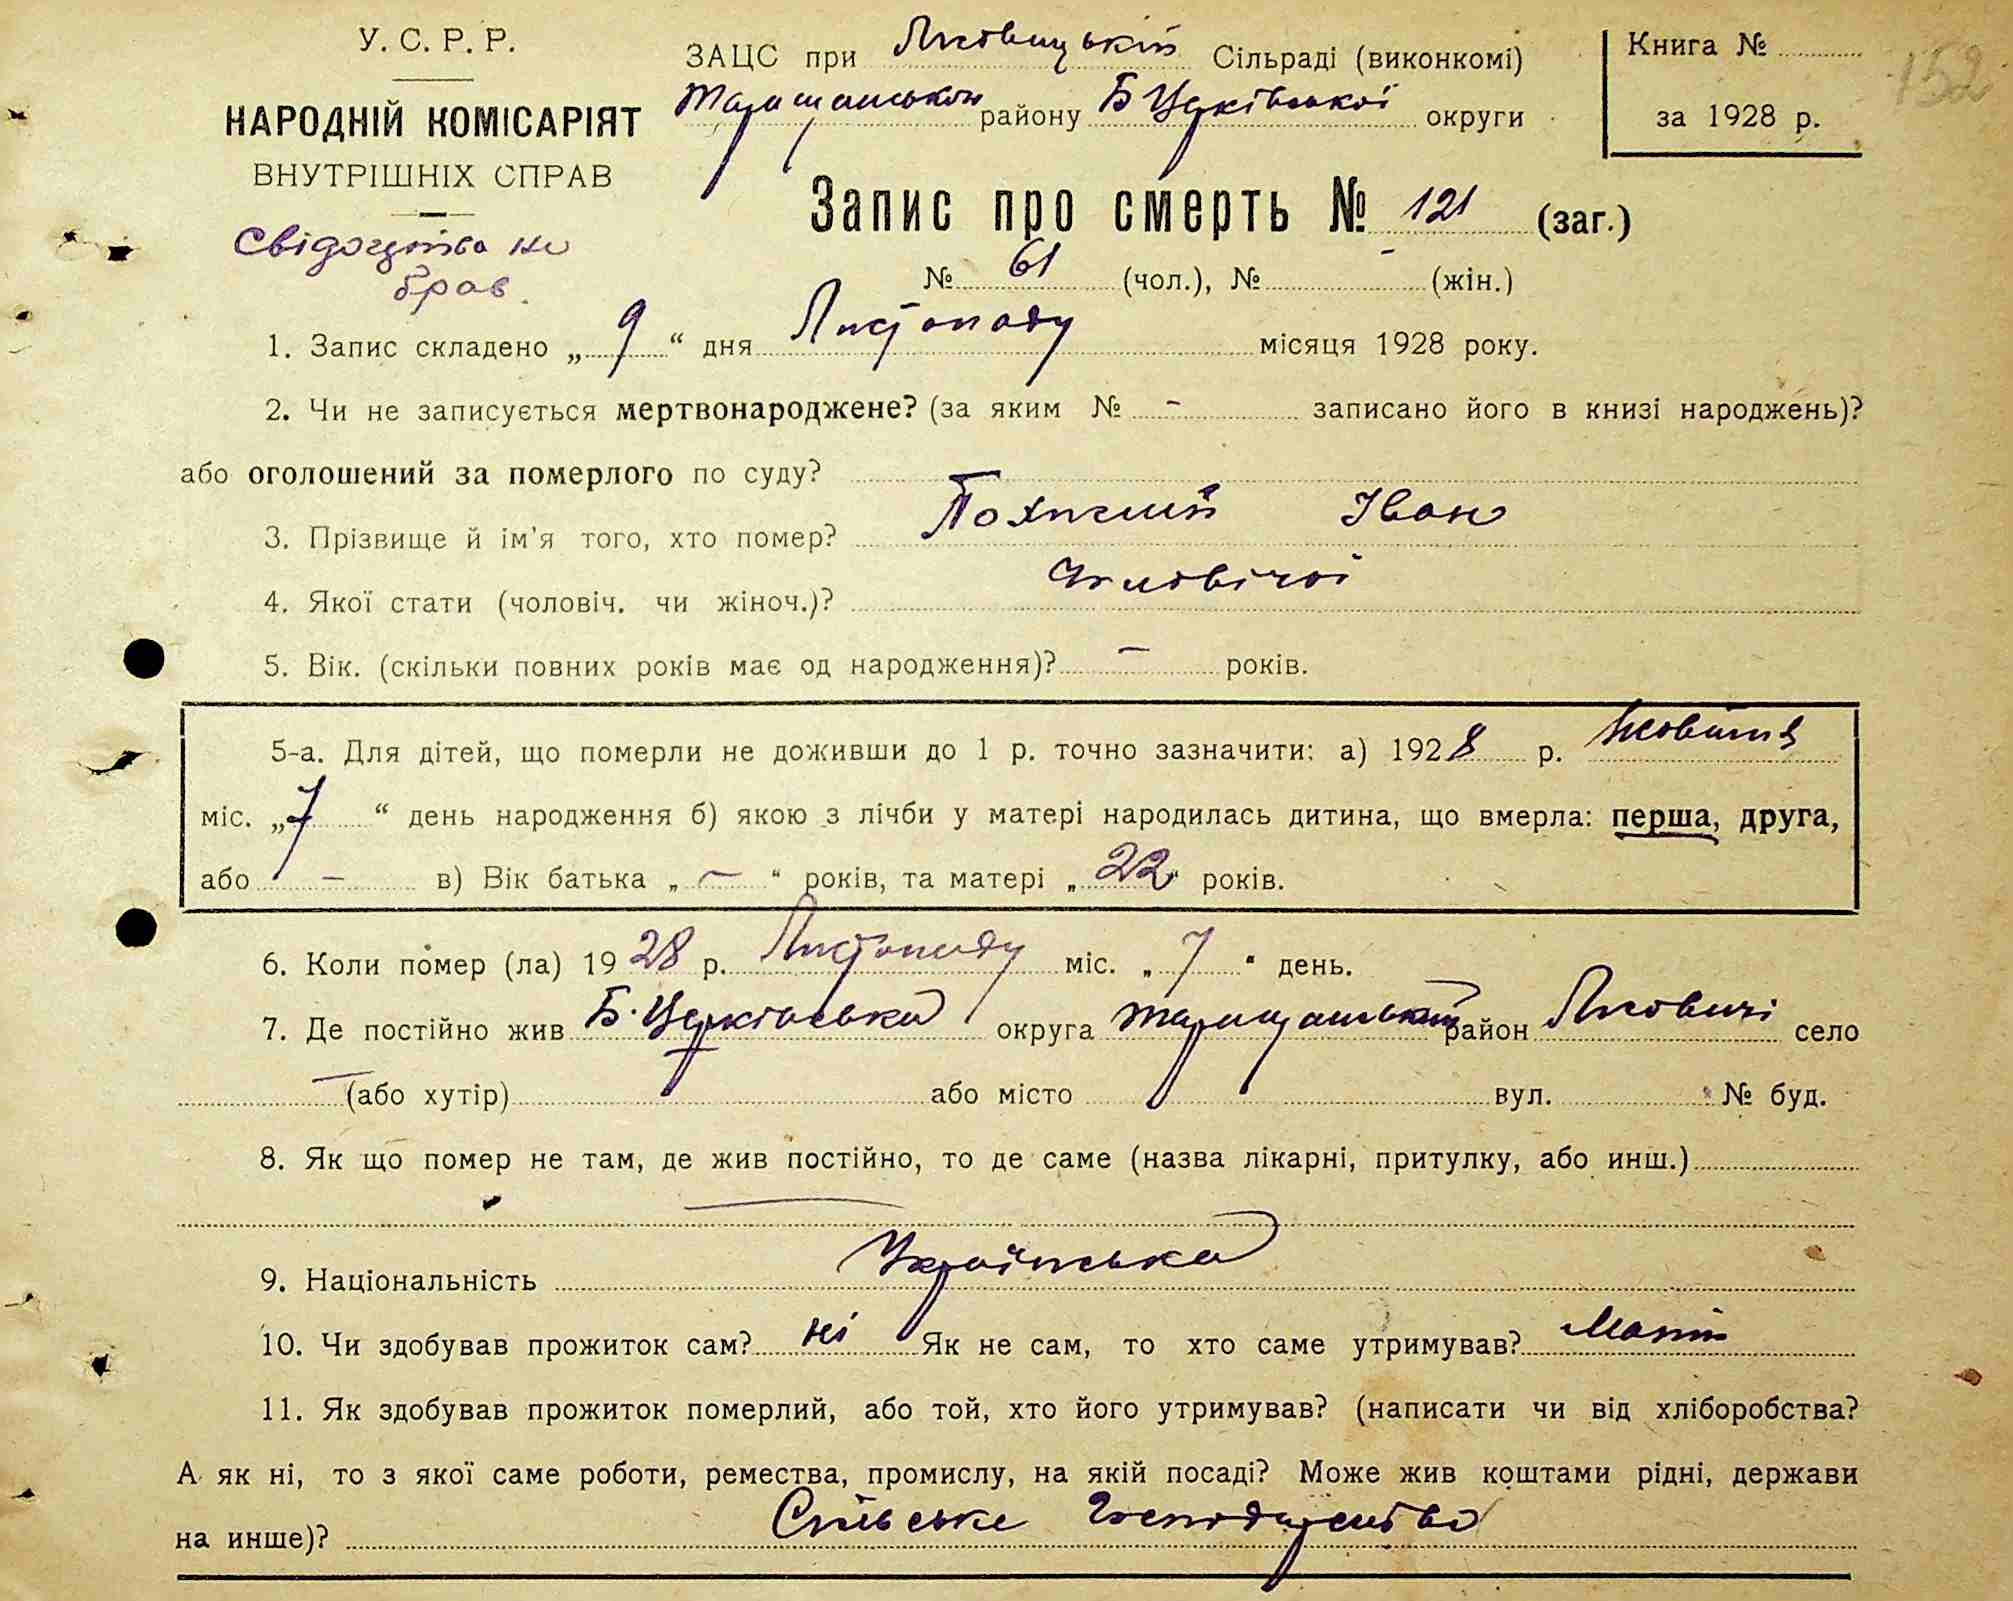 У. С. Р. Р.
НАРОДНІЙ КОМІСАРІЯТ
ВНУТРІШНІХ СПРАВ
Свідоцтва не
брав.
ЗАЦС при Лисовицькій Сільраді (виконкомі)
Таращанського району Б Церківської округи
Книга №
за 1928 р.
152
Запис про смерть № 121 (заг.)
№ 61 (чол.), № - (жін.)
1. Запис складено „ 9 “ дня Листопаду місяця 1928 року.
2. Чи не записується мертвонароджене? (за яким № - записано його в книзі народжень)?
або оголошений за померлого по суду?
3. Прізвище й ім'я того, хто помер? Іван
4. Якої стати (чоловіч. чи жіноч.)? Чоловічої
5. Вік. (скільки повних років має од народження)? — років.
5-а. Для дітей, що померли не доживши до 1 р. точно зазначити: а) 1928 р. Жовтня
міс. „ 7 “ день народження б) якою з лічби у матері народилась дитина, що вмерла: перша, друга,
або – в) Вік батька „ – “ років, та матері „ 22 “ років.
6. Коли помер (ла) 1928 р. Листопаду міс. „ 7 “ день.
7. Де постійно жив Б. Церківська округа Таращанський район Лисовичі село
— (або хутір) або місто вул. № буд.
8. Як що помер не там, де жив постійно, то де саме (назва лікарні, притулку, або инш.)
—
9. Національність Українська
10. Чи здобував прожиток сам? ні Як не сам, то хто саме утримував? Мати
11. Як здобував прожиток померлий, або той, хто його утримував? (написати чи від хліборобства?
А як ні, то з якої саме роботи, ремества, промислу, на якій посаді? Може жив коштами рідні, держави
на инше)? Сільське Господарство